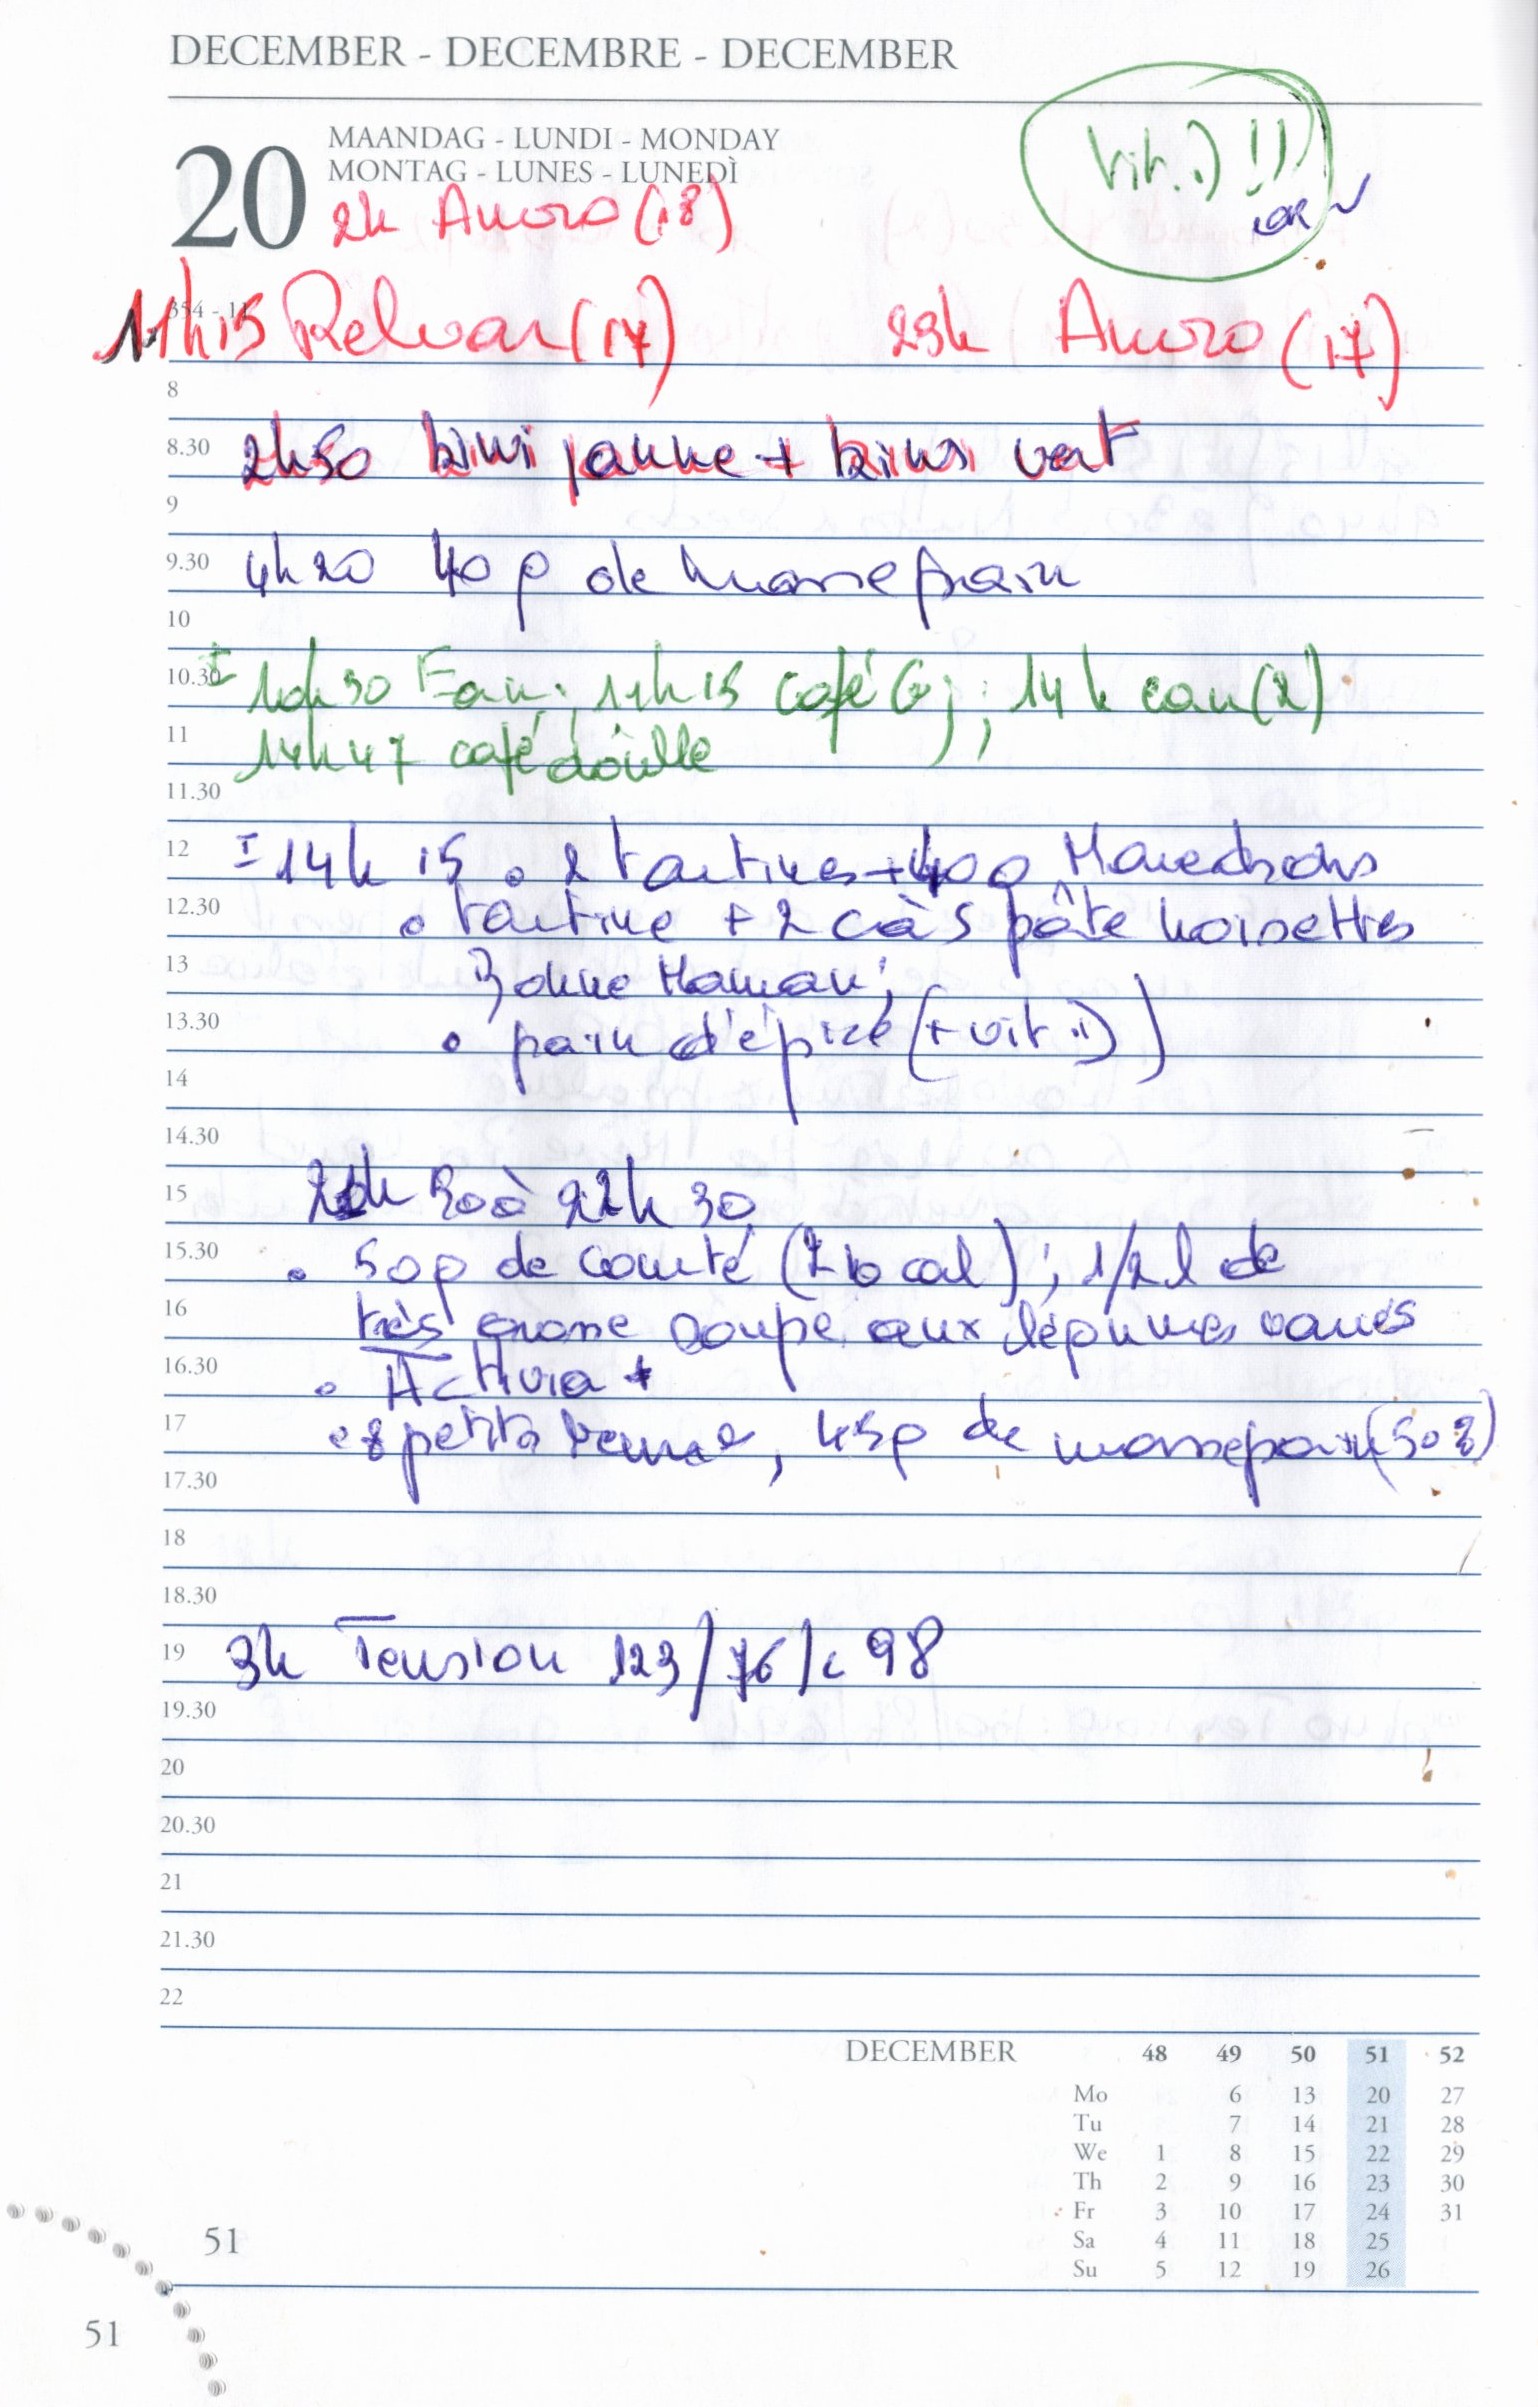 DECEMBER - DECEMBRE - DECEMBER
20
MAANDAG - LUNDI - MONDAY
MONTAG - LUNES - LUNEDÌ
Vit. D !!!
ok ✓
2h Anoro (18)
354 - 11
11h15 Relvar (17) 23h Anoro (17)
8
8.30 2h50 kiwi jaune + kiwi vert
9
9.30 4h20 40 g de massepain
10
10.30 I 10h30 Eau; 11h15 café; 14h eau (2)
11 14h47 café double
11.30
12 I 14h15 • 2 tartines + 40 g
12.30 • tartine + 2 càs pâte noisettes
13 Bonne Maman;
13.30 • pain d'épice (+ vit D)
14
14.30
15 30 à 22h30
15.30 • 50 g de comté (210 cal); 1/2 l de
16 très grosse soupe aux légumes variés
16.30 • Activia +
17 petits, 45g de massepain
17.30
18
18.30
19 3h Tension 123/76/c 98
19.30
20
20.30
21
21.30
22
DECEMBER 48 49 50 51 52
Mo 6 13 20 27
Tu 7 14 21 28
We 1 8 15 22 29
Th 2 9 16 23 30
Fr 3 10 17 24 31
Sa 4 11 18 25
Su 5 12 19 26
51
51